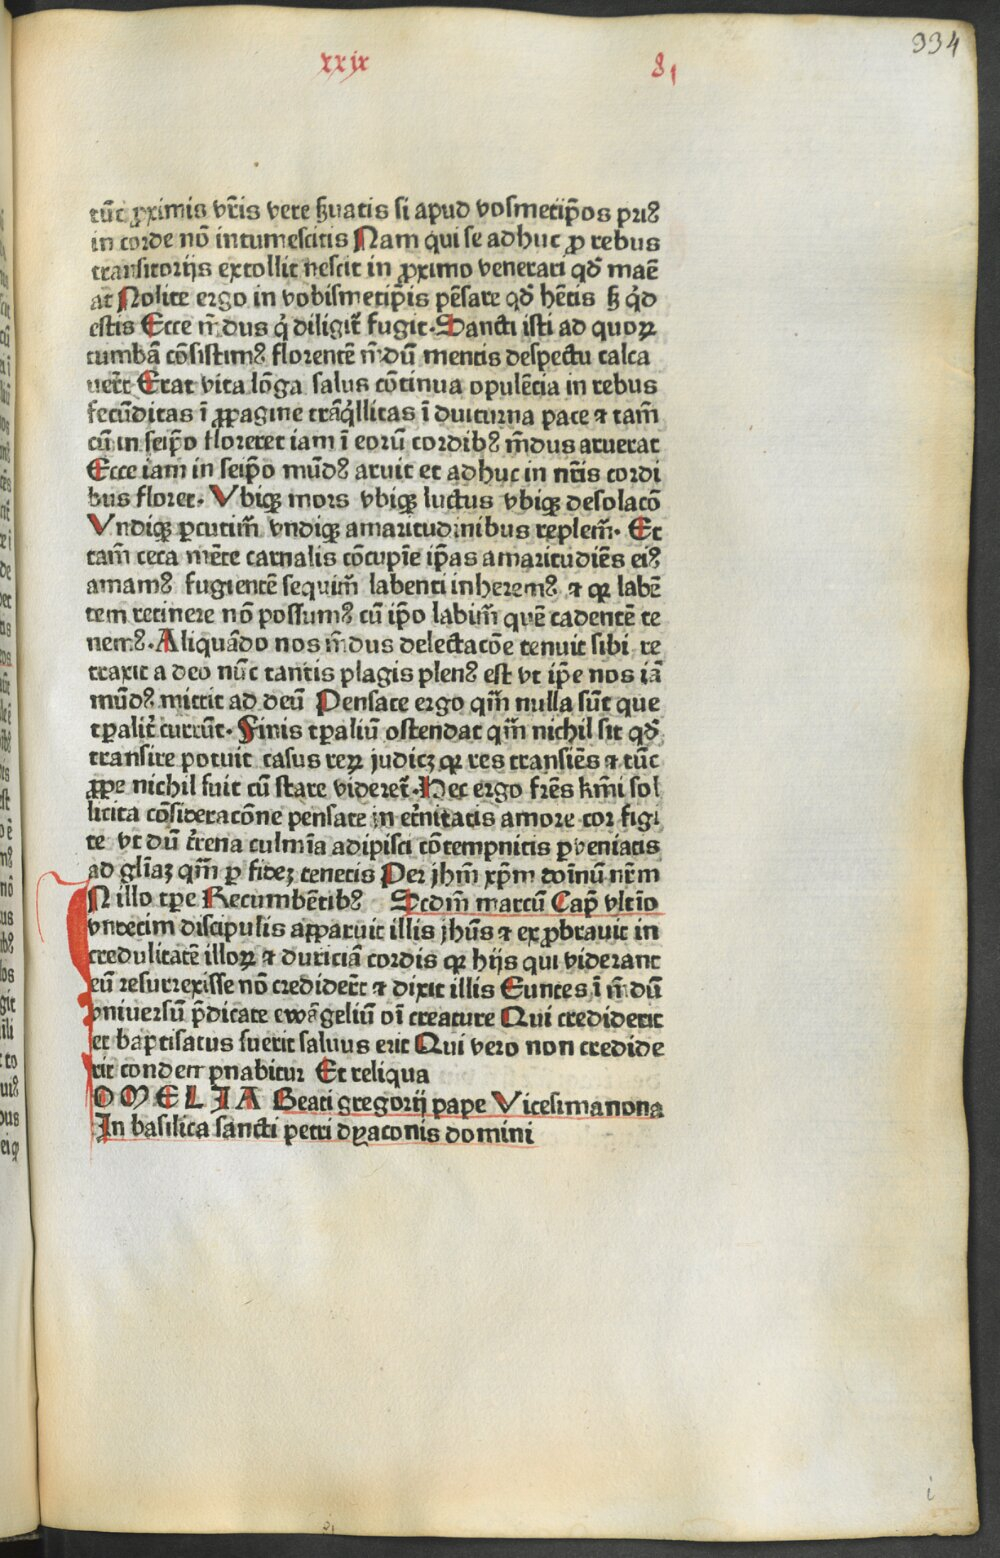 xxix 81
334
tūc ꝓximis vr̄is vere ẜuatis si apud vosmetip̄os priꝰ
in corde nō intumescitis Nam qui se adhuc ꝓ rebus
transitorijs extollit nescit in ꝓximo venerari qd̄ maē
at Nolite ergo in vobismetip̄is pēsare qd̄ hētis ẜ qd̄
estis Ecce m̄dus q̇ diligit᷑ fugit. Sancti isti ad quoꝝ
tumbā cōsistimꝰ florentē m̄dū mentis despectu calca
uer̄t Erat vita lōga salus cōtinua opulētia in rebus
fecūditas ī ꝓpagine trāq̇llitas ī duiturna pace ⁊ tam̄
cū in seip̄o floreret iam ī eorū cordibꝰ m̄dus aruerat
Ecce iam in seip̄o mūdꝰ aruit et adhuc in nr̄is cordi
bus floret. Vbiqꝫ mors vbiqꝫ luctus vbiqꝫ desolacō
Vndiqꝫ ꝑcutim̄ vndiqꝫ amaritudinibus replem̄. Et
tam̄ ceca mēte carnalis cōcupīe ip̄as amaritudiēs eiꝰ
amamꝰ fugientē sequim̄ labenti inheremꝰ ⁊ qꝛ labē
tem retinere nō possumꝰ cū ip̄o labim̄ quē cadentē te
nemꝰ. Aliquādo nos m̄dus delectacōe tenuit sibi re
traxit a deo nūc tantis plagis plenꝰ est vt ip̄e nos iā
mūdꝰ mittit ad deū Pensate ergo qm̄ nulla sūt que
tꝑalit᷑ currūt. Finis tꝑaliū ostendat qm̄ nichil sit qd̄
transire potuit casus reꝝ judicꝫ qꝛ res transiēs ⁊ tūc
ꝓpe nichil fuit cū stare videret᷑. Hec ergo frēs kmi sol
licita cōsideracōne pensate in et᷑nitatis amore cor figi
te vt dū t᷑rena culmīa adipisci cōtempnitis ꝑveniatis
ad glīaꝫ qm̄ ꝑ fideꝫ tenetis Per jhm̄ xp̄m doīnū nr̄m
N illo tꝑe Recumbētibꝰ Scdm̄ marcū Cap̄ vltīo
vndecim discipulis apparuit illis jhūs ⁊ exprobravit in
credulitatē illoꝝ ⁊ duriciā cordis qꝛ hijs qui viderant
eū resurrexisse nō credider̄t ⁊ dixit illis Euntes ī m̄dū
vniuersū p̄dicate ewāgeliū oī creature Qui crediderit
et baptisatus fuerit saluus erit Qui vero non credide
rit condempnabitur Et reliqua
OMELIA Beati gregorij pape Vicesimanona
In basilica sancti petri dyaconis domini
i